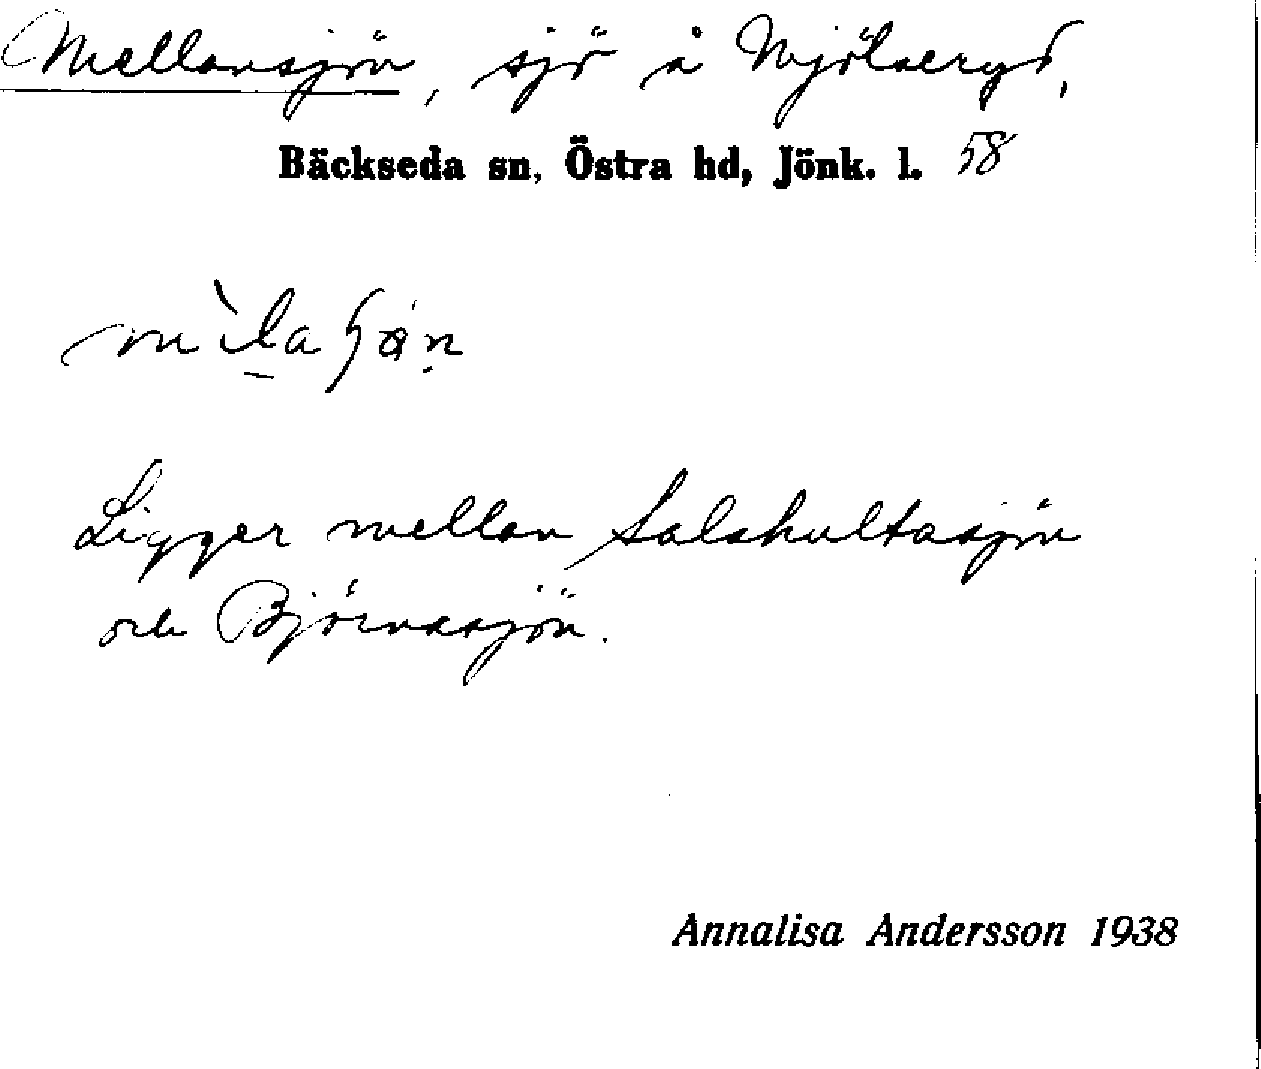 Mellansjön, sjö å Mjölaryd,
Bäckseda sn, Östra hd, Jönk. l. 58
Ligger mellan Salshultasjön
och Björnasjön.
Annalisa Andersson 1938